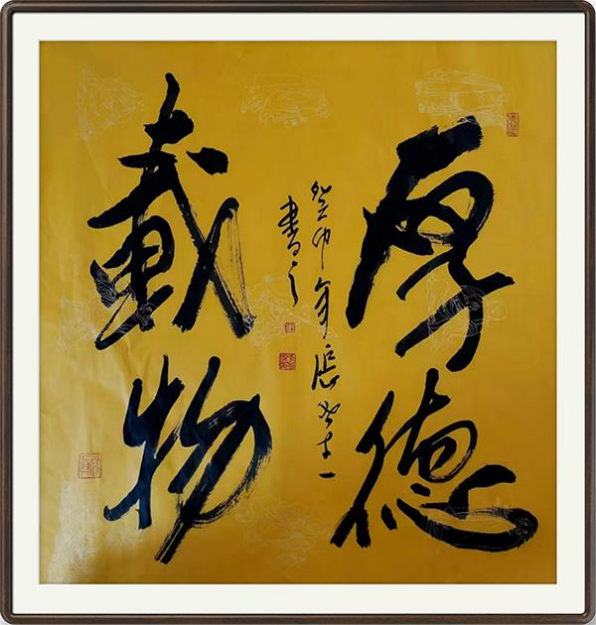 厚德
載物
癸卯年張
書之